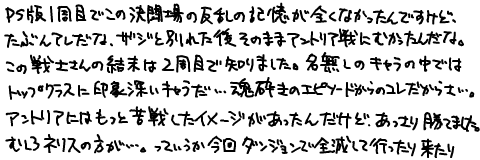 PS版1周目でこの決闘場の反乱の記憶が全くなかったんですけど、
たぶんアレだな、ザジと別れた後そのままアントリア戦にむかったんだな。
この戦士さんの結末は2周目で知りました。名無しのキャラの中では
トップクラスに印象深いキャラだ…魂砕きのエピソードからのコレだからさぃ。
アントリアにはもっと苦戦したイメージがあったんだけど、あっさり勝てました。
むしろネリスの方が…。っていうか今回ダンジョンで全滅して行ったり来たり